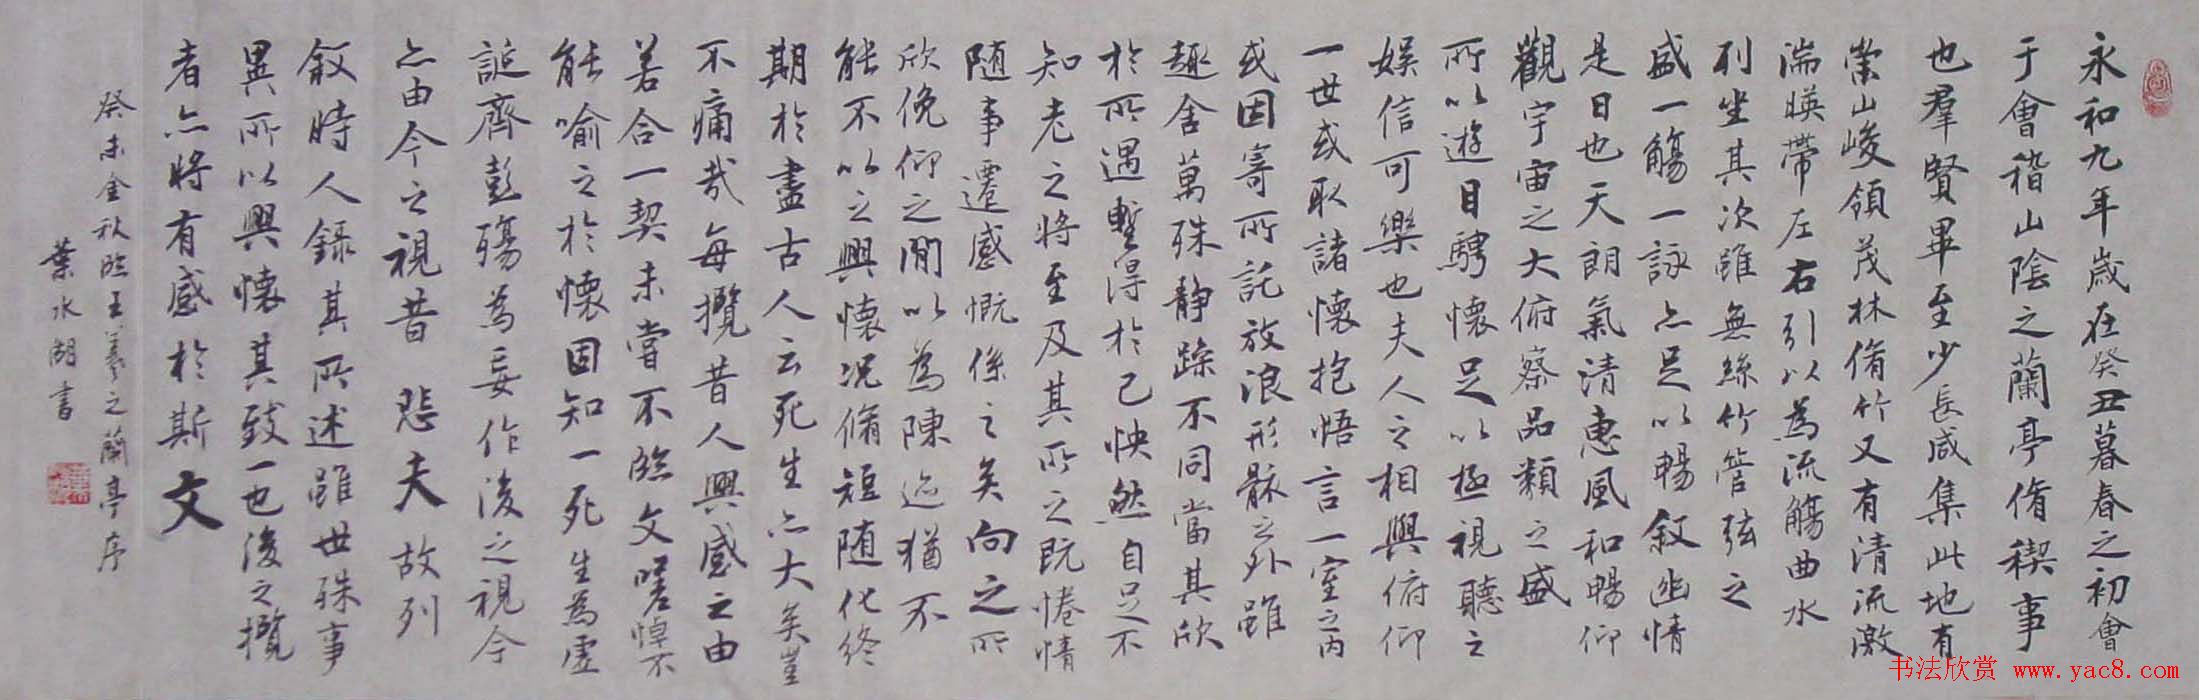 永和九年歲在癸丑暮春之初會
于會稽山陰之蘭亭脩稧事
也羣賢畢至少長咸集此地有
崇山峻領茂林脩竹又有清流激
湍暎帶左右引以為流觴曲水
列坐其次雖無絲竹管弦之
盛一觴一詠亦足以暢敘幽情
是日也天朗氣清惠風和暢仰
觀宇宙之大俯察品類之盛
所以遊目騁懷足以極視聽之
娛信可樂也夫人之相與俯仰
一世或取諸懷抱悟言一室之內
或因寄所託放浪形骸之外雖
趣舍萬殊靜躁不同當其欣
於所遇暫得於己怏然自足不
知老之將至及其所之既惓情
随事遷感慨係之矣向之所
欣俛仰之閒以為陳迹猶不
能不以之興懷況脩短随化終
期於盡古人云死生亦大矣豈
不痛哉每攬昔人興感之由
若合一契未嘗不臨文嗟悼不
能喻之於懷固知一死生為虛
誕齊彭殤為妄作後之視今
亦由今之視昔 悲夫故列
敘時人錄其所述雖世殊事
異所以興懷其致一也後之攬
者亦將有感於斯文
癸未金秋臨王羲之蘭亭序
葉水湖書
书法欣赏 www.yac8.com